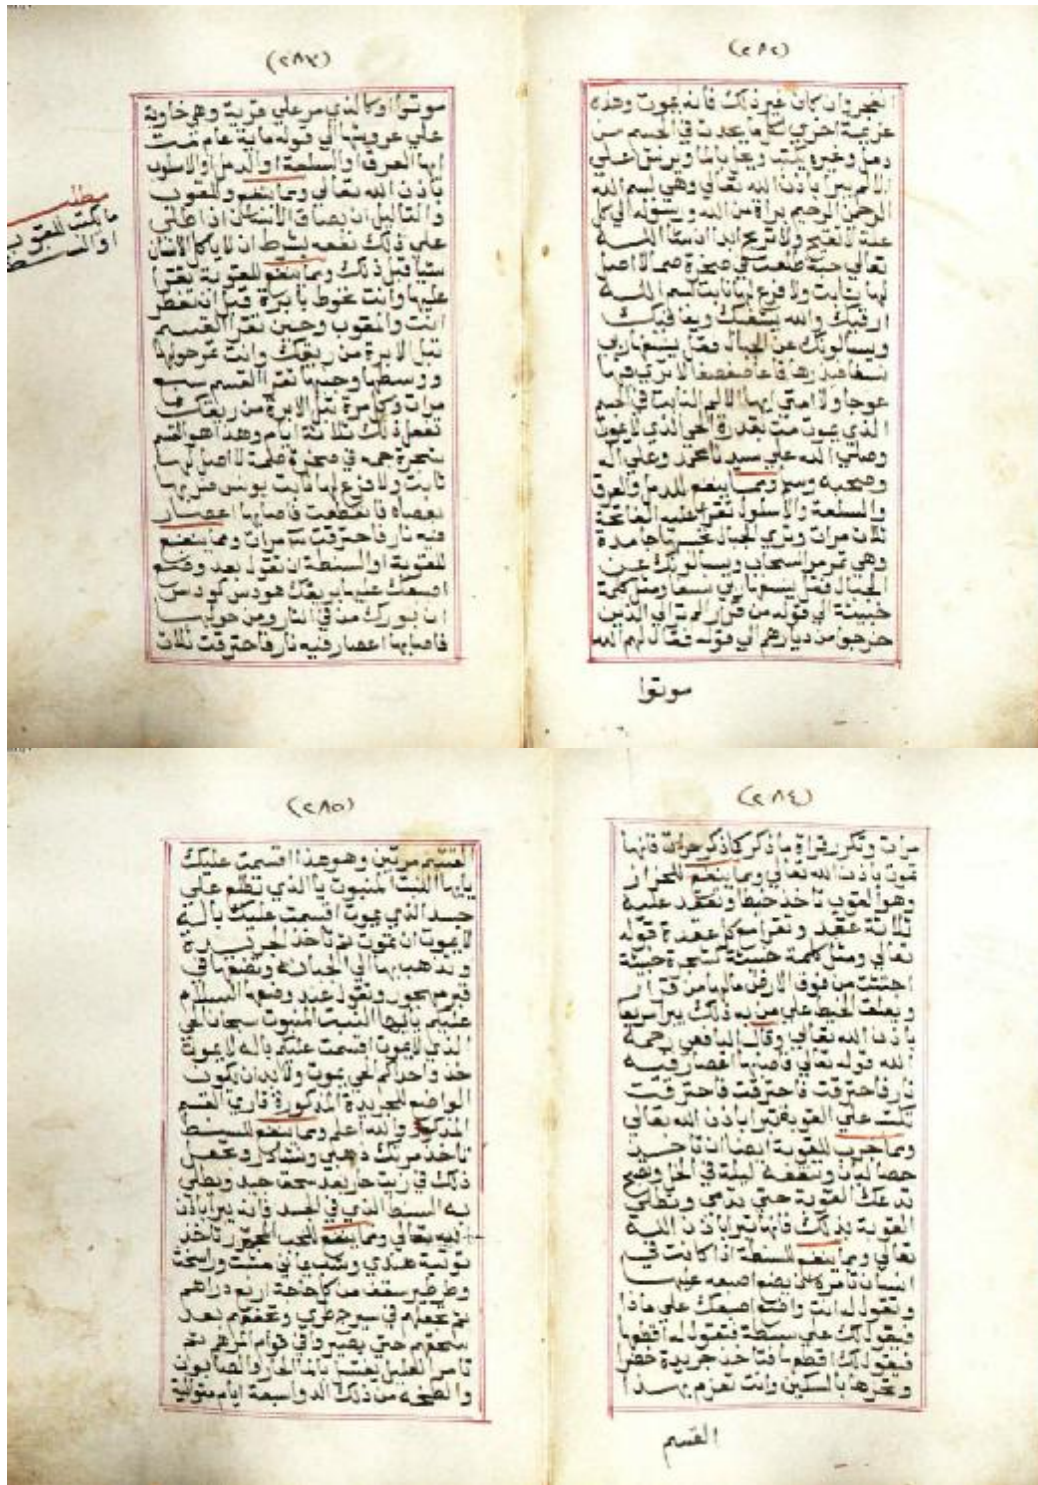 (٢٨٢)
الفجر وان كان غير ذلك فانه يموت وهذه
عزيمة اخري لكل ما يحدث في الجسم من
دمل وغيره
الالم يبرا باذن الله تعالي وهي بسم الله
الرحمن الرحيم براة من الله ورسوله الي كل
علة لا تقيح ولا تريح ابدا ان شا الله
تعالي حبة طلعت في صخرة صما لا اصل
لها ثابت ولا فرع لها نابت بسم الله
ارقيك والله يشفيك ويعافيك
ويسالونك عن الجبال فقل ينسفها ربي
نسفا فيذرها قاعا صفصفا لا تري فيها
عوجا ولا امتي ايها الالم النابت في الجسم
الذي يموت مت بقدرة الحي الذي لا يموت
وصلي الله علي سيدنا محمد وعلي اله
وصحبه وسلم ومما ينفع للدمل والعرق
والسلعة والاسلوب تقرا عليه الفاتحة
ثلاث مرات وتري الجبال تحسبها جامدة
وهي تمر مر السحاب ويسالونك عن
الجبال فقل ينسفها ربي نسفا ومثل كلمة
خبيثة الي قوله من قرار الم تر الي الذين
خرجوا من ديارهم الي قوله فقال لهم الله
موتوا
(٢٨٣)
موتوا او كالذي مر علي قرية وهي خاوية
علي عروشها الي قوله ماية عام مت
ايها العرق او السلعة او الدمل او الاسلوب
باذن الله تعالي ومما ينفع للقوب
والتاليل ان بصاق الانسان اذا طلي
علي ذلك نفعه بشرط ان لا ياكل الانسان
شيا قبل ذلك ومما ينفع للقوبة يقرا
عليها وانت تخوط بابرة قبل ان تفطر
انت والمقوب وحين تقرا القسم
تبل الابرة من ريقك وانت تمر حولها
ووسطها وجنبها تقرا القسم سبع
مرات وكل مرة تبل الابرة من ريقك
تفعل ذلك ثلاثة ايام وهذا هو القسم
شجرة جمه في صخرة صلمة لا اصل لها
ثابت ولا فرع لها نابت يونس ضربها
بعصاه فانقطعت فاصابها اعصار
فيه نار فاحترقت ست مرات ومما ينفع
للقوبة او السنطة ان تقول بعد وضع
اصبعك عليها بريقك هودس كودس
ان بورك من في النار ومن حولها
فاصابها اعصار فيه نار فاحترقت ثلاث
مطلب
ما يكتب للقوب
او السنط
(٢٨٤)
مرات وتكرر قراة ما ذكر كما ذكر مرات فانها
تموت باذن الله تعالي ومما ينفع للحزاز
وهو القوب تاخذ خيطا وتعقد عليه
ثلاثة عقد وتقرا مع كل عقدة قوله
تعالي ومثل كلمة خبيثة كشجرة خبيثة
اجتثت من فوق الارض مالها من قرار
ويعلق الخيط علي من به ذلك يبرا سريعا
باذن الله تعالي وقال اليافعي رحمة
الله قوله تعالي فاصابها اعصار فيه
نار فاحترقت فاحترقت فاحترقت
تكتب علي القوبة تبرا باذن الله تعالي
ومما جرب للقوبة ايضا ان تاخذ
حصا لبان وتنقعه ليلة في الخل وتصبح
تدعك القوبة حتي تدمي وتطلي
القوبة بذلك فانها تبرا باذن الله
تعالي ومما ينفع للسنطة اذا كانت في
انسان تامره ان يضع اصبعه عليها
وتقول له انت واضع اصبعك علي ماذا
فيقول لك علي سنطة فتقول له اقطعها
فيقول لك اقطعها فتاخذ جريدة خضرا
وتحزها بالسكين وانت تعزم بهذا
القسم
(٢٨٥)
القسم مرتين وهو هذا اقسمت عليك
يايها النبت المنبوت يا الذي تطلع علي
جسد الذي يموت اقسمت عليك باله
لا يموت ان تموت ثم تاخذ الجريدة
وتذهب بها الي الجبانه وتضعها في
قبر مهجور وتقول عند وضعها السلام
عليكم يايها النبت المنبوت سبحان الحي
الذي لا يموت اقسمت عليكم باله لا يموت
خذوا حدكم لحي يموت ولابد ان يكون
الواضع للجريدة المذكورة قاري القسم
المذكور والله اعلم ومما ينفع للسنط
تاخذ مرتك ذهبي ونشادر وتجعل
ذلك في زيت حار بعد سحقه جيد ويطلي
به السنط الذي في الجسد فانه يبرا باذن
الله تعالي ومما ينفع للحب المجرب تاخذ
توتية هندي وشب يماني مثبت وراسخت
وطرطير سقف من كل حاجة اربع دراهم
ثم تجعلهم في سيرج طري وتحفقهم بعد
سحقهم حتي يصيروا في قوام المرهم ثم
تامر العليل يغتسل بالما الحار والصابون
والطخه من ذلك الدوا سبعة ايام متوالية